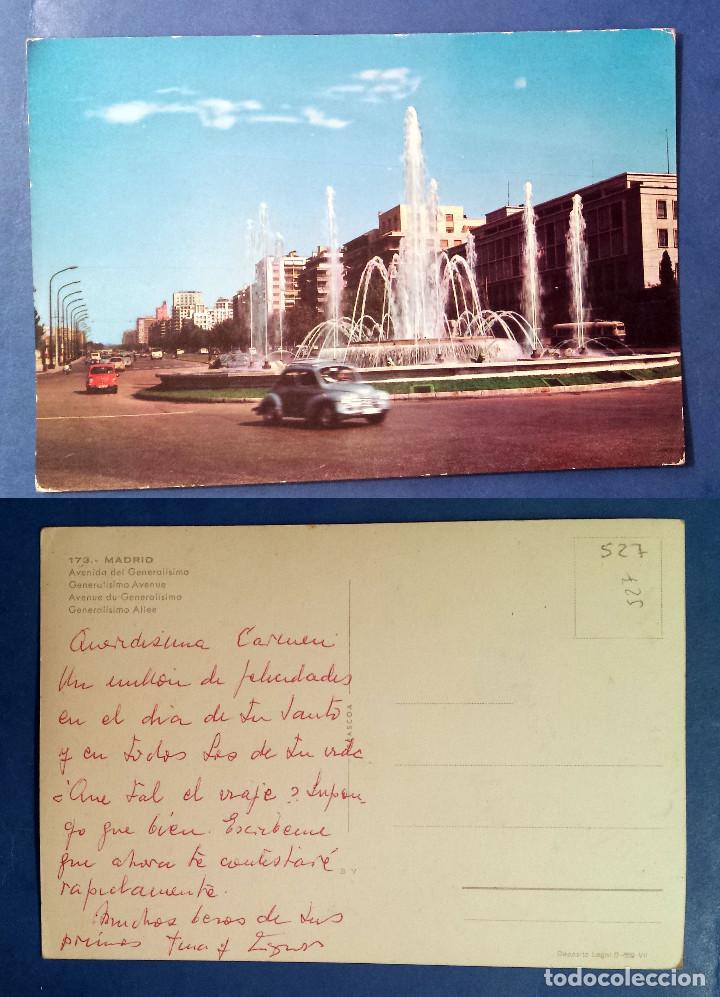 173.- MADRID
Avenida del Generalísimo
Generalísimo Avenue
Avenue du Generalísimo
Generalísimo Allee
527
527
Querdisima Carmen:
Un millón de felicidades
en el dia de tu santo
y en todos los de tu vida
¿Que tal el viaje? Supon-
go que bien. Escribeme
que ahora te contestaré
rapidamente.
Muchos besos de tus
primos y
Depósito Legal B-
todocoleccion